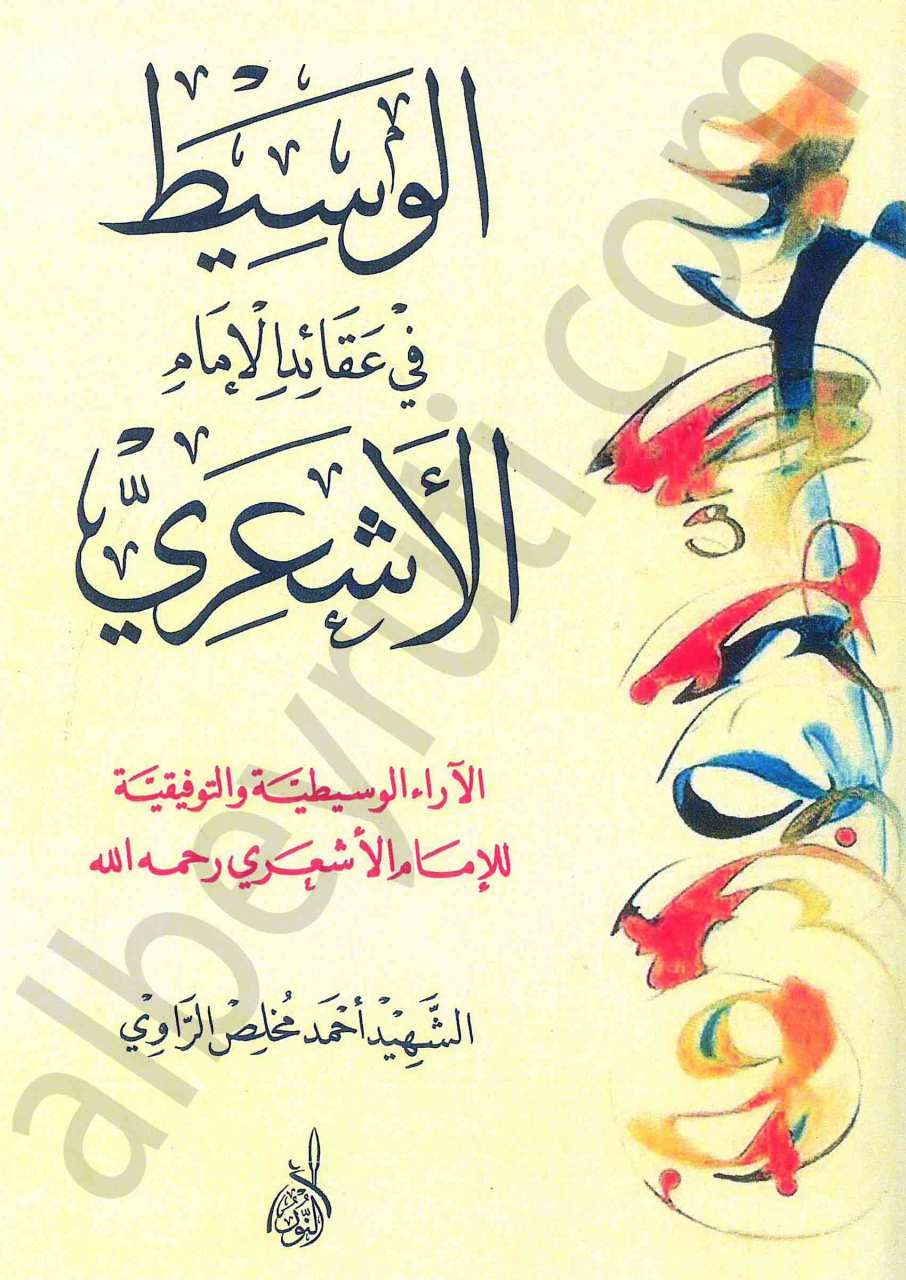 الوَسِيْط
فِيْ عَقَائِدِ الْإِمَامِ
الأَشعَرِيّ
الآراء الوسيطيَّة والتوفيقيَّة
للإمَام الأشعَري رحمه الله
الشَّهِيْد أحْمَد مُخْلِصْ الرَّاوِيْ
النُّوْر
albeyruti.com